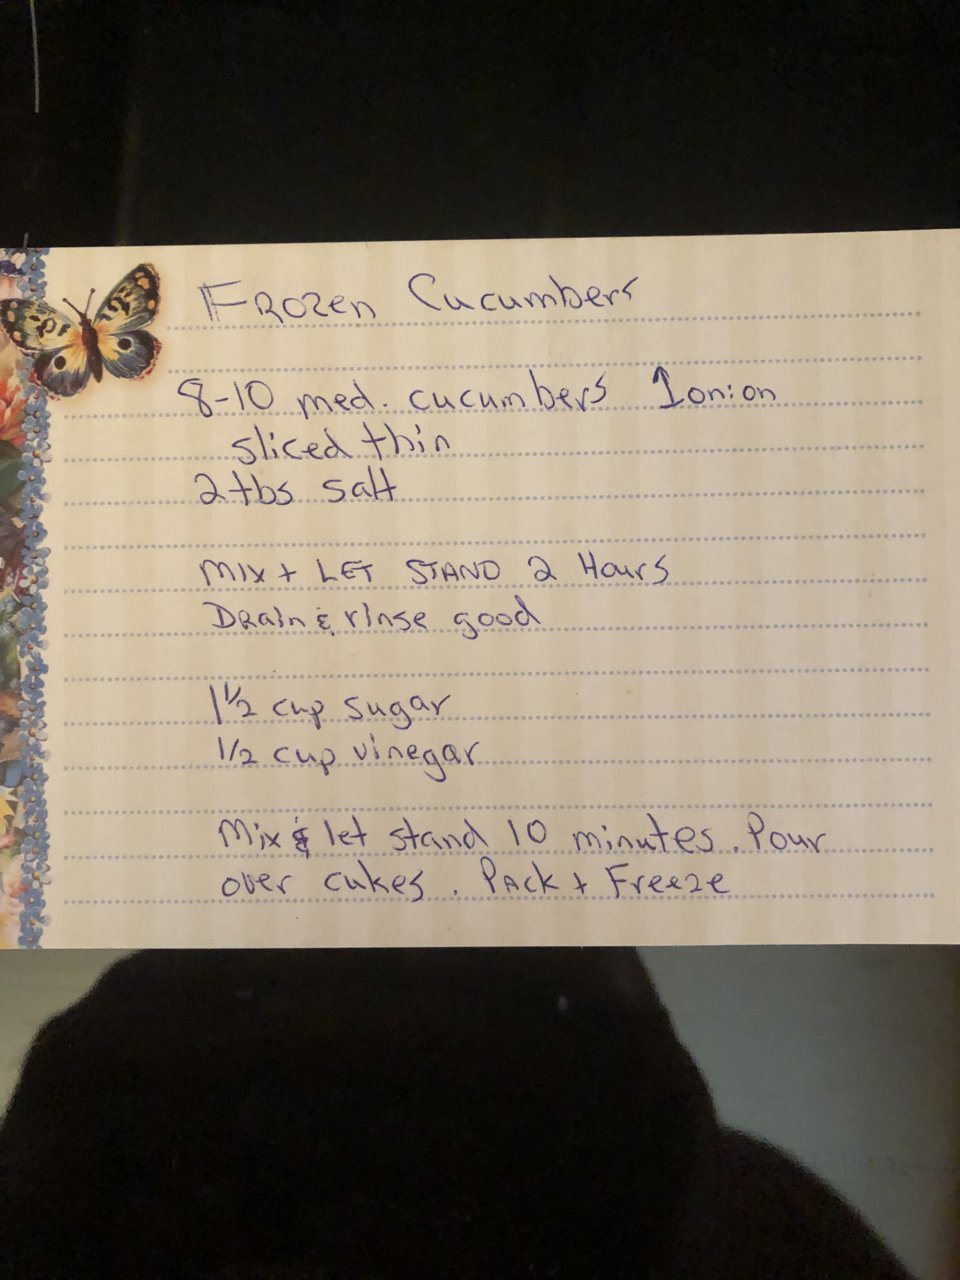 Frozen Cucumbers
8-10 med. cucumbers 1 onion
sliced thin
2 tbs salt
Mix + LET STAND 2 Hours
Drain & rinse good
1 1/2 cup sugar
1/2 cup vinegar
Mix & let stand 10 minutes. Pour
over cukes. Pack + Freeze